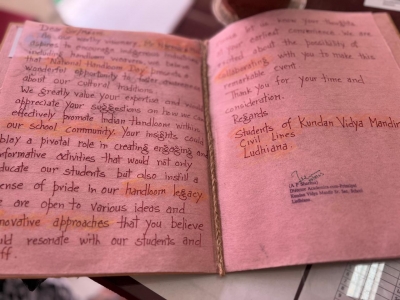 our worthy visionary,
aspires to encourage indigenous industries
including handloom
that National Handloom Day
wonderful opportunity to
about our cultural traditions.
We greatly value your expertise and would
appreciate your suggestions on how we can
effectively promote Indian handlooms within
our school community. Your insights could
play a pivotal role in creating engaging and
informative activities that would not only
educate our students but also instill a
sense of pride in our handloom legacy.
We are open to various ideas and
innovative approaches that you believe
would resonate with our students and
staff.
us know your thoughts
at your earliest convenience. We are
excited about the possibility of
collaborating with you to make this
remarkable event
Thank you for your time and
consideration.
Regards
Students of Kundan Vidya Mandir
Civil Lines
Ludhiana.
Kundan Vidya Mandir
Ludhiana